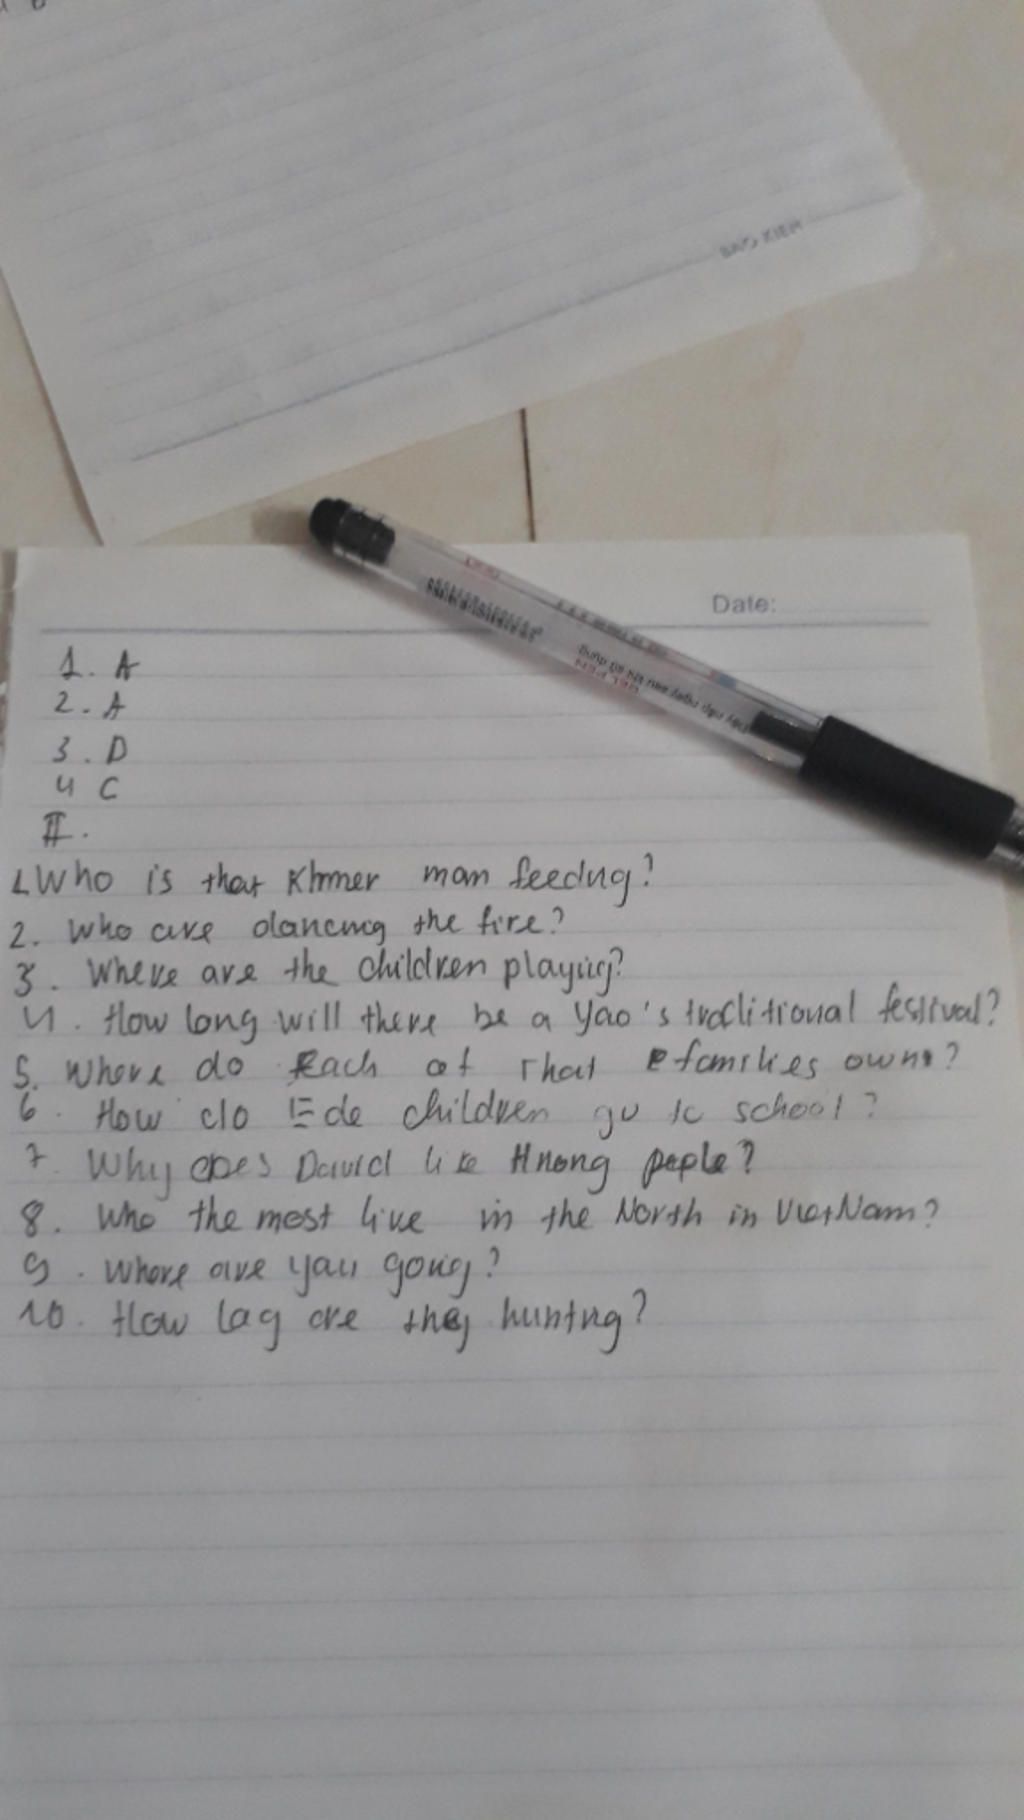 BAO KIEM
Date:
1. A
2. A
3. D
4 C
II.
1. Who is that Khmer man feeding?
2. Who are dancing the fire?
3. Where are the children playing?
4. How long will there be a Yao's traditional festival?
5. Where do Each of That families own?
6. How do E-de children go to school?
7. Why does David like Hmong peple?
8. Who the most live in the North in VietNam?
9. Where are you going?
10. How lag are they hunting?